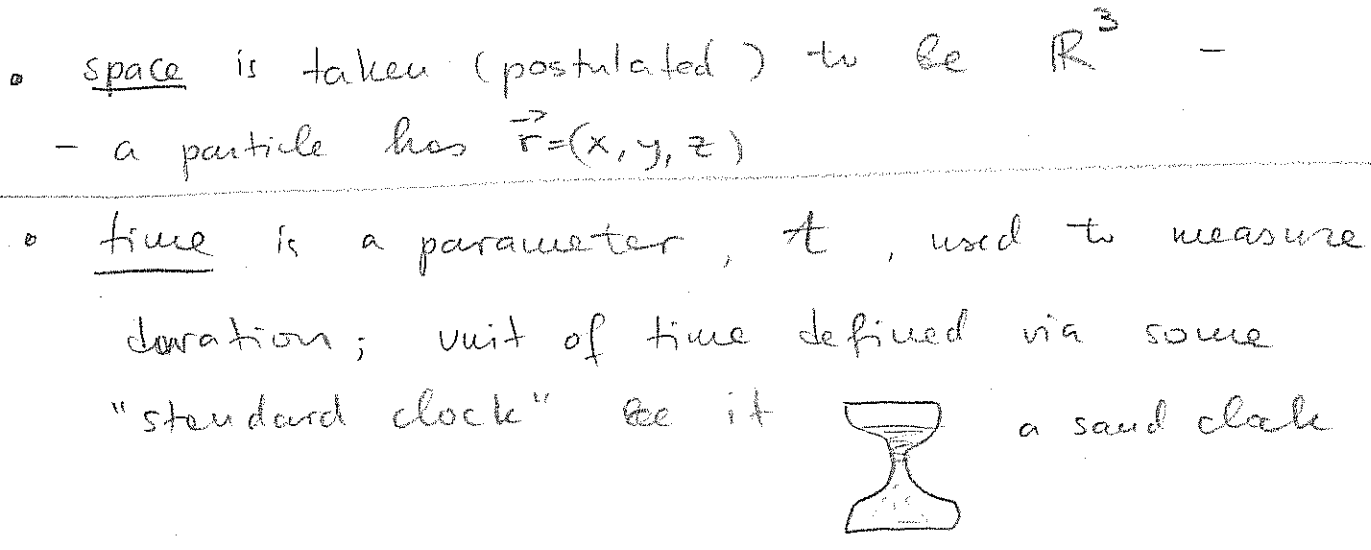 • space is taken (postulated) to be ℝ³ -
- a particle has r⃗=(x, y, z)
• time is a parameter, t, used to measure
duration; unit of time defined via some
"standard clock" be it a sand clock